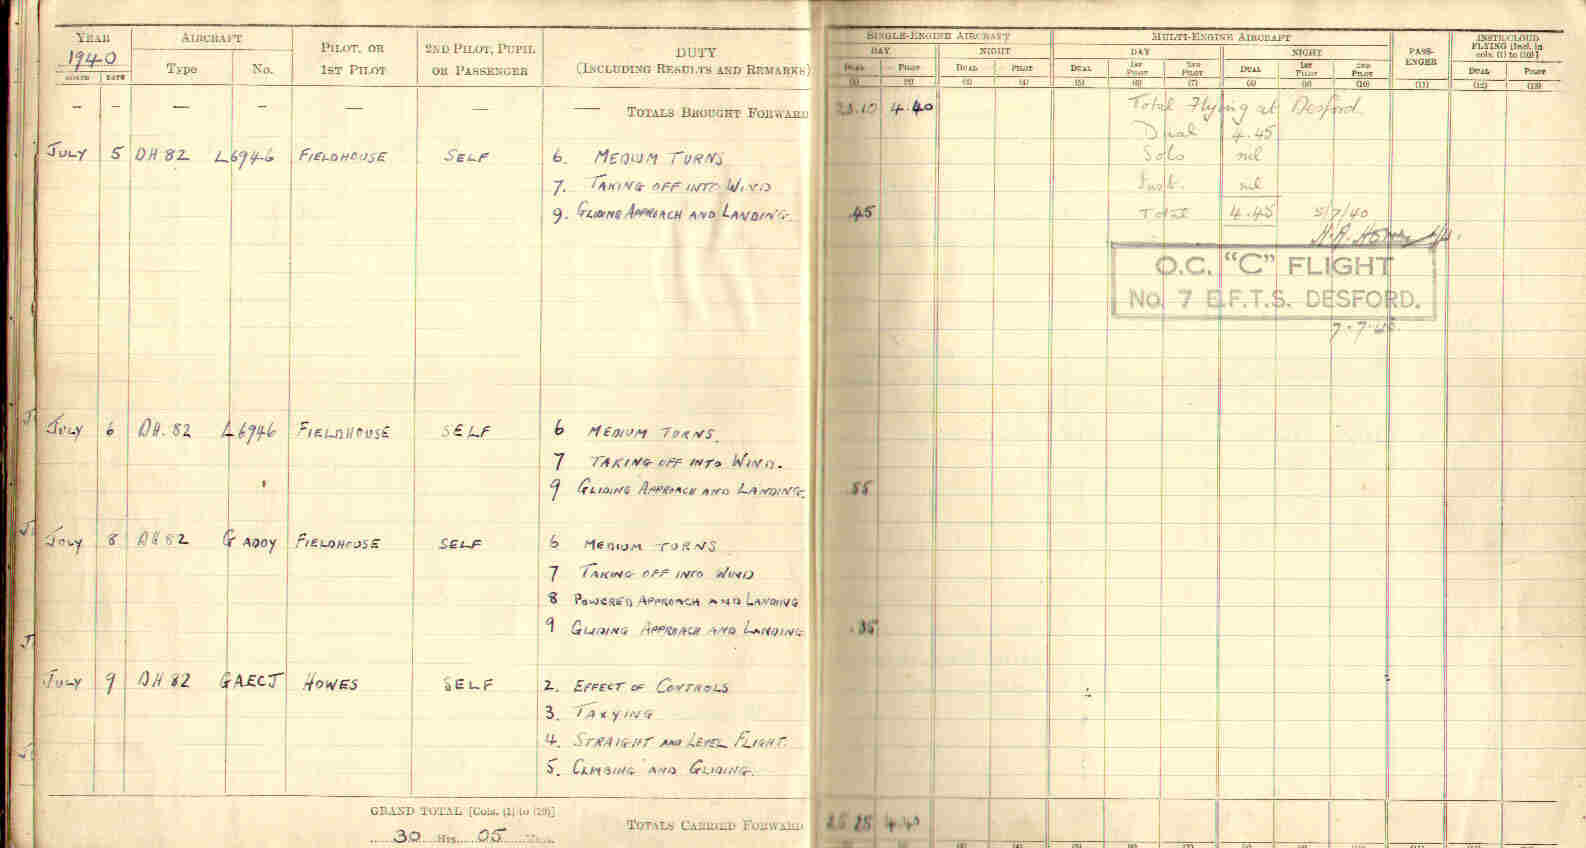 YEAR AIRCRAFT PILOT, OR 1ST PILOT 2ND PILOT, PUPIL OR PASSENGER DUTY (INCLUDING RESULTS AND REMARKS) SINGLE-ENGINE AIRCRAFT MULTI-ENGINE AIRCRAFT PASS-ENGER INSTR/CLOUD FLYING [Incl. in cols. (1) to (10)]
1940 DAY NIGHT DAY NIGHT
MONTH DATE Type No. DUAL PILOT DUAL PILOT DUAL 1ST PILOT 2ND PILOT DUAL 1ST PILOT 2ND PILOT DUAL PILOT
(1) (2) (3) (4) (5) (6) (7) (8) (9) (10) (11) (12) (13)
— — — — — — — TOTALS BROUGHT FORWARD 4.40 Total Flying at Desford
Dual 4.45
JULY 5 DH 82 L6946 FIELDHOUSE SELF 6. MEDIUM TURNS Solo nil
7. TAKING OFF INTO WIND Inst. nil
9. GLIDING APPROACH AND LANDING. .45 Total 4.45 5/7/40
O.C. "C" FLIGHT
No. 7 E.F.T.S. DESFORD.
7.7.40
JULY 6 DH.82 L6946 FIELDHOUSE SELF 6 MEDIUM TURNS.
7 TAKING OFF INTO WIND.
9 GLIDING APPROACH AND LANDING. .55
JULY 8 DH 82 G ADOY FIELDHOUSE SELF 6 MEDIUM TURNS
7 TAKING OFF INTO WIND
8 POWERED APPROACH AND LANDING
9 GLIDING APPROACH AND LANDING .35
JULY 9 DH 82 GAECJ HOWES SELF 2. EFFECT OF CONTROLS
3. TAXYING
4. STRAIGHT AND LEVEL FLIGHT.
5. CLIMBING AND GLIDING.
GRAND TOTAL [Cols. (1) to (10)]
30 Hrs. 05 Mins. TOTALS CARRIED FORWARD 25 25 4.40